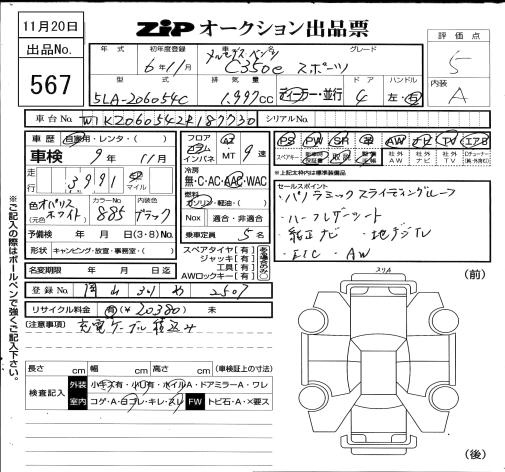 11月20日
ZIP オークション出品票
出品No.
567
年式 初年度登録 車名 グレード
6年11月 メルセデスベンツ C350e スポーツ
型式 排気量 ドア ハンドル
5LA-206054C 1,997cc ディーラー・並行 4 左・右
評価点
5
内装
A
車台No. W1K2060542R187730 シリアルNo.
車歴 自家用・レンタ・( )
車検 9年 11月
走行 3991 km マイル
外装色 オパリスホワイト (元色) カラーNo. 885 内装色 ブラック
予備検 年 月 日(3・8)No.
形状 キャンピング・放宣・事務室・( )
名変期限 年 月 日迄
登録No. 岡山 301 や 2507
リサイクル料金 有(¥20380) 未
シフト
フロア コラム インパネ AT MT 9速
冷房 無・C・AC・AAC・WAC
燃料 ガソリン・軽油・( )
Nox 適合・非適合
乗車定員 5名
スペアタイヤ[有]
ジャッキ[有]
工具[有]
AWロックキー[有]
PS PW SR 革 AW ナビ TV エアB
スペアキー 取説
社外AW 社外ナビ 社外TV
※上記太枠内は標準装備品
セールスポイント
・パノラミックスライディングルーフ
・ハーフレザーシート
・純正ナビ ・地デジTV
・ETC ・AW
(注意事項) 充電ケーブル積込み
長さ cm 幅 cm 高さ cm (車検証上の寸法)
検査記入 外装 小キズ有・小凹有・ホイルA・ドアミラーA・ワレ
室内 コゲ・A・白コレ・キレ・スレ FW トビ石・A・×要ス
スリA
(前)
(後)
※ご記入の際はボールペンで強くご記入下さい。